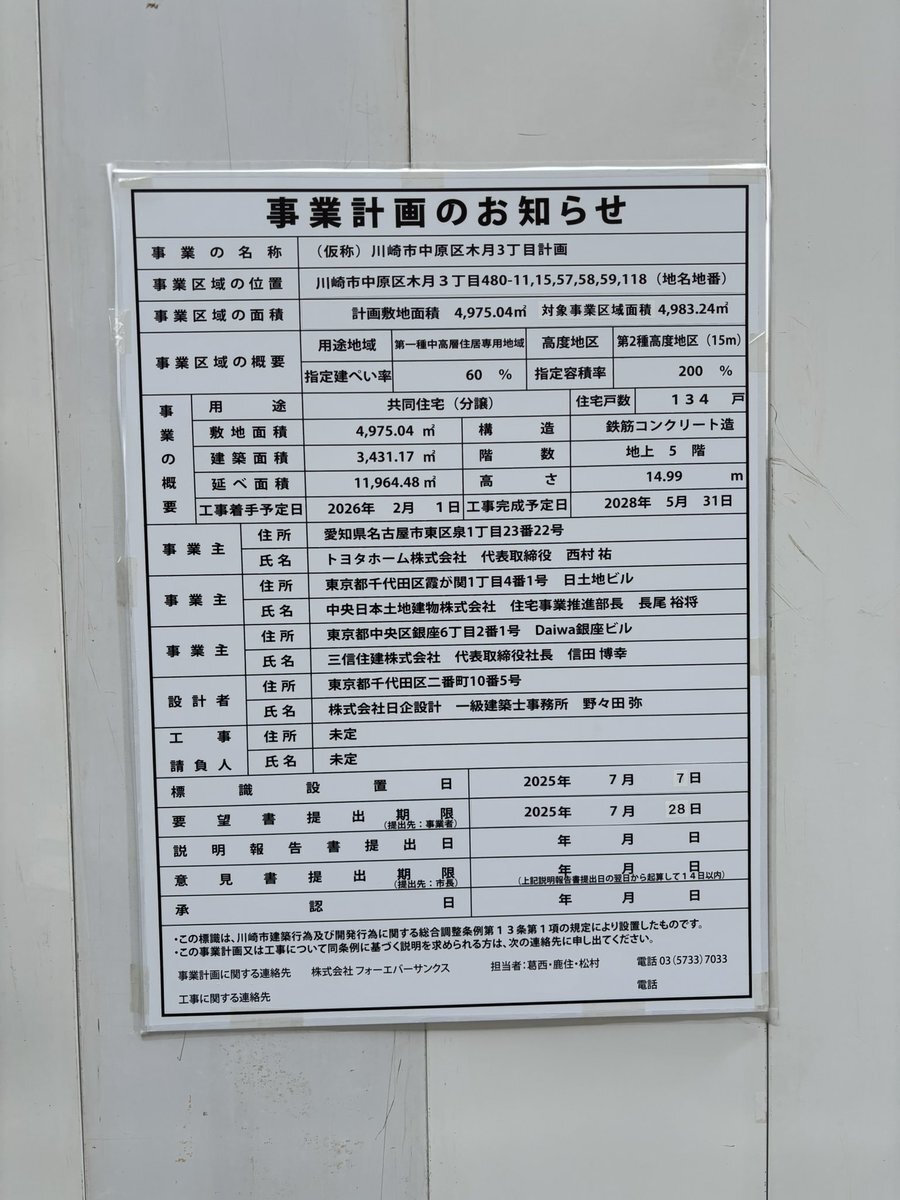 事業計画のお知らせ
事業の名称 （仮称）川崎市中原区木月3丁目計画
事業区域の位置 川崎市中原区木月３丁目480-11,15,57,58,59,118（地名地番）
事業区域の面積 計画敷地面積 4,975.04㎡ 対象事業区域面積 4,983.24㎡
事業区域の概要 用途地域 第一種中高層住居専用地域 高度地区 第2種高度地区（15m）
指定建ぺい率 60 % 指定容積率 200 %
事業の概要 用途 共同住宅（分譲） 住宅戸数 １３４ 戸
敷地面積 4,975.04 ㎡ 構造 鉄筋コンクリート造
建築面積 3,431.17 ㎡ 階数 地上 5 階
延べ面積 11,964.48 ㎡ 高さ 14.99 m
工事着手予定日 2026年 2月 1日 工事完成予定日 2028年 5月 31日
事業主 住所 愛知県名古屋市東区泉1丁目23番22号
氏名 トヨタホーム株式会社 代表取締役 西村 祐
事業主 住所 東京都千代田区霞が関1丁目4番1号 日土地ビル
氏名 中央日本土地建物株式会社 住宅事業推進部長 長尾 裕将
事業主 住所 東京都中央区銀座6丁目2番1号 Daiwa銀座ビル
氏名 三信住建株式会社 代表取締役社長 信田 博幸
設計者 住所 東京都千代田区二番町10番5号
氏名 株式会社日企設計 一級建築士事務所 野々田 弥
工事請負人 住所 未定
氏名 未定
標識設置日 2025年 7月 7日
要望書提出期限 （提出先：事業者） 2025年 7月 28日
説明報告書提出日 年 月 日
意見書提出期限 （提出先：市長） 年 月 日 （上記説明報告書提出日の翌日から起算して１４日以内）
承認日 年 月 日
・この標識は、川崎市建築行為及び開発行為に関する総合調整条例第１３条第１項の規定により設置したものです。
・この事業計画又は工事について同条例に基づく説明を求められる方は、次の連絡先に申し出てください。
事業計画に関する連絡先 株式会社 フォーエバーサンクス 担当者：葛西・鹿住・松村 電話 03（5733）7033
工事に関する連絡先 電話